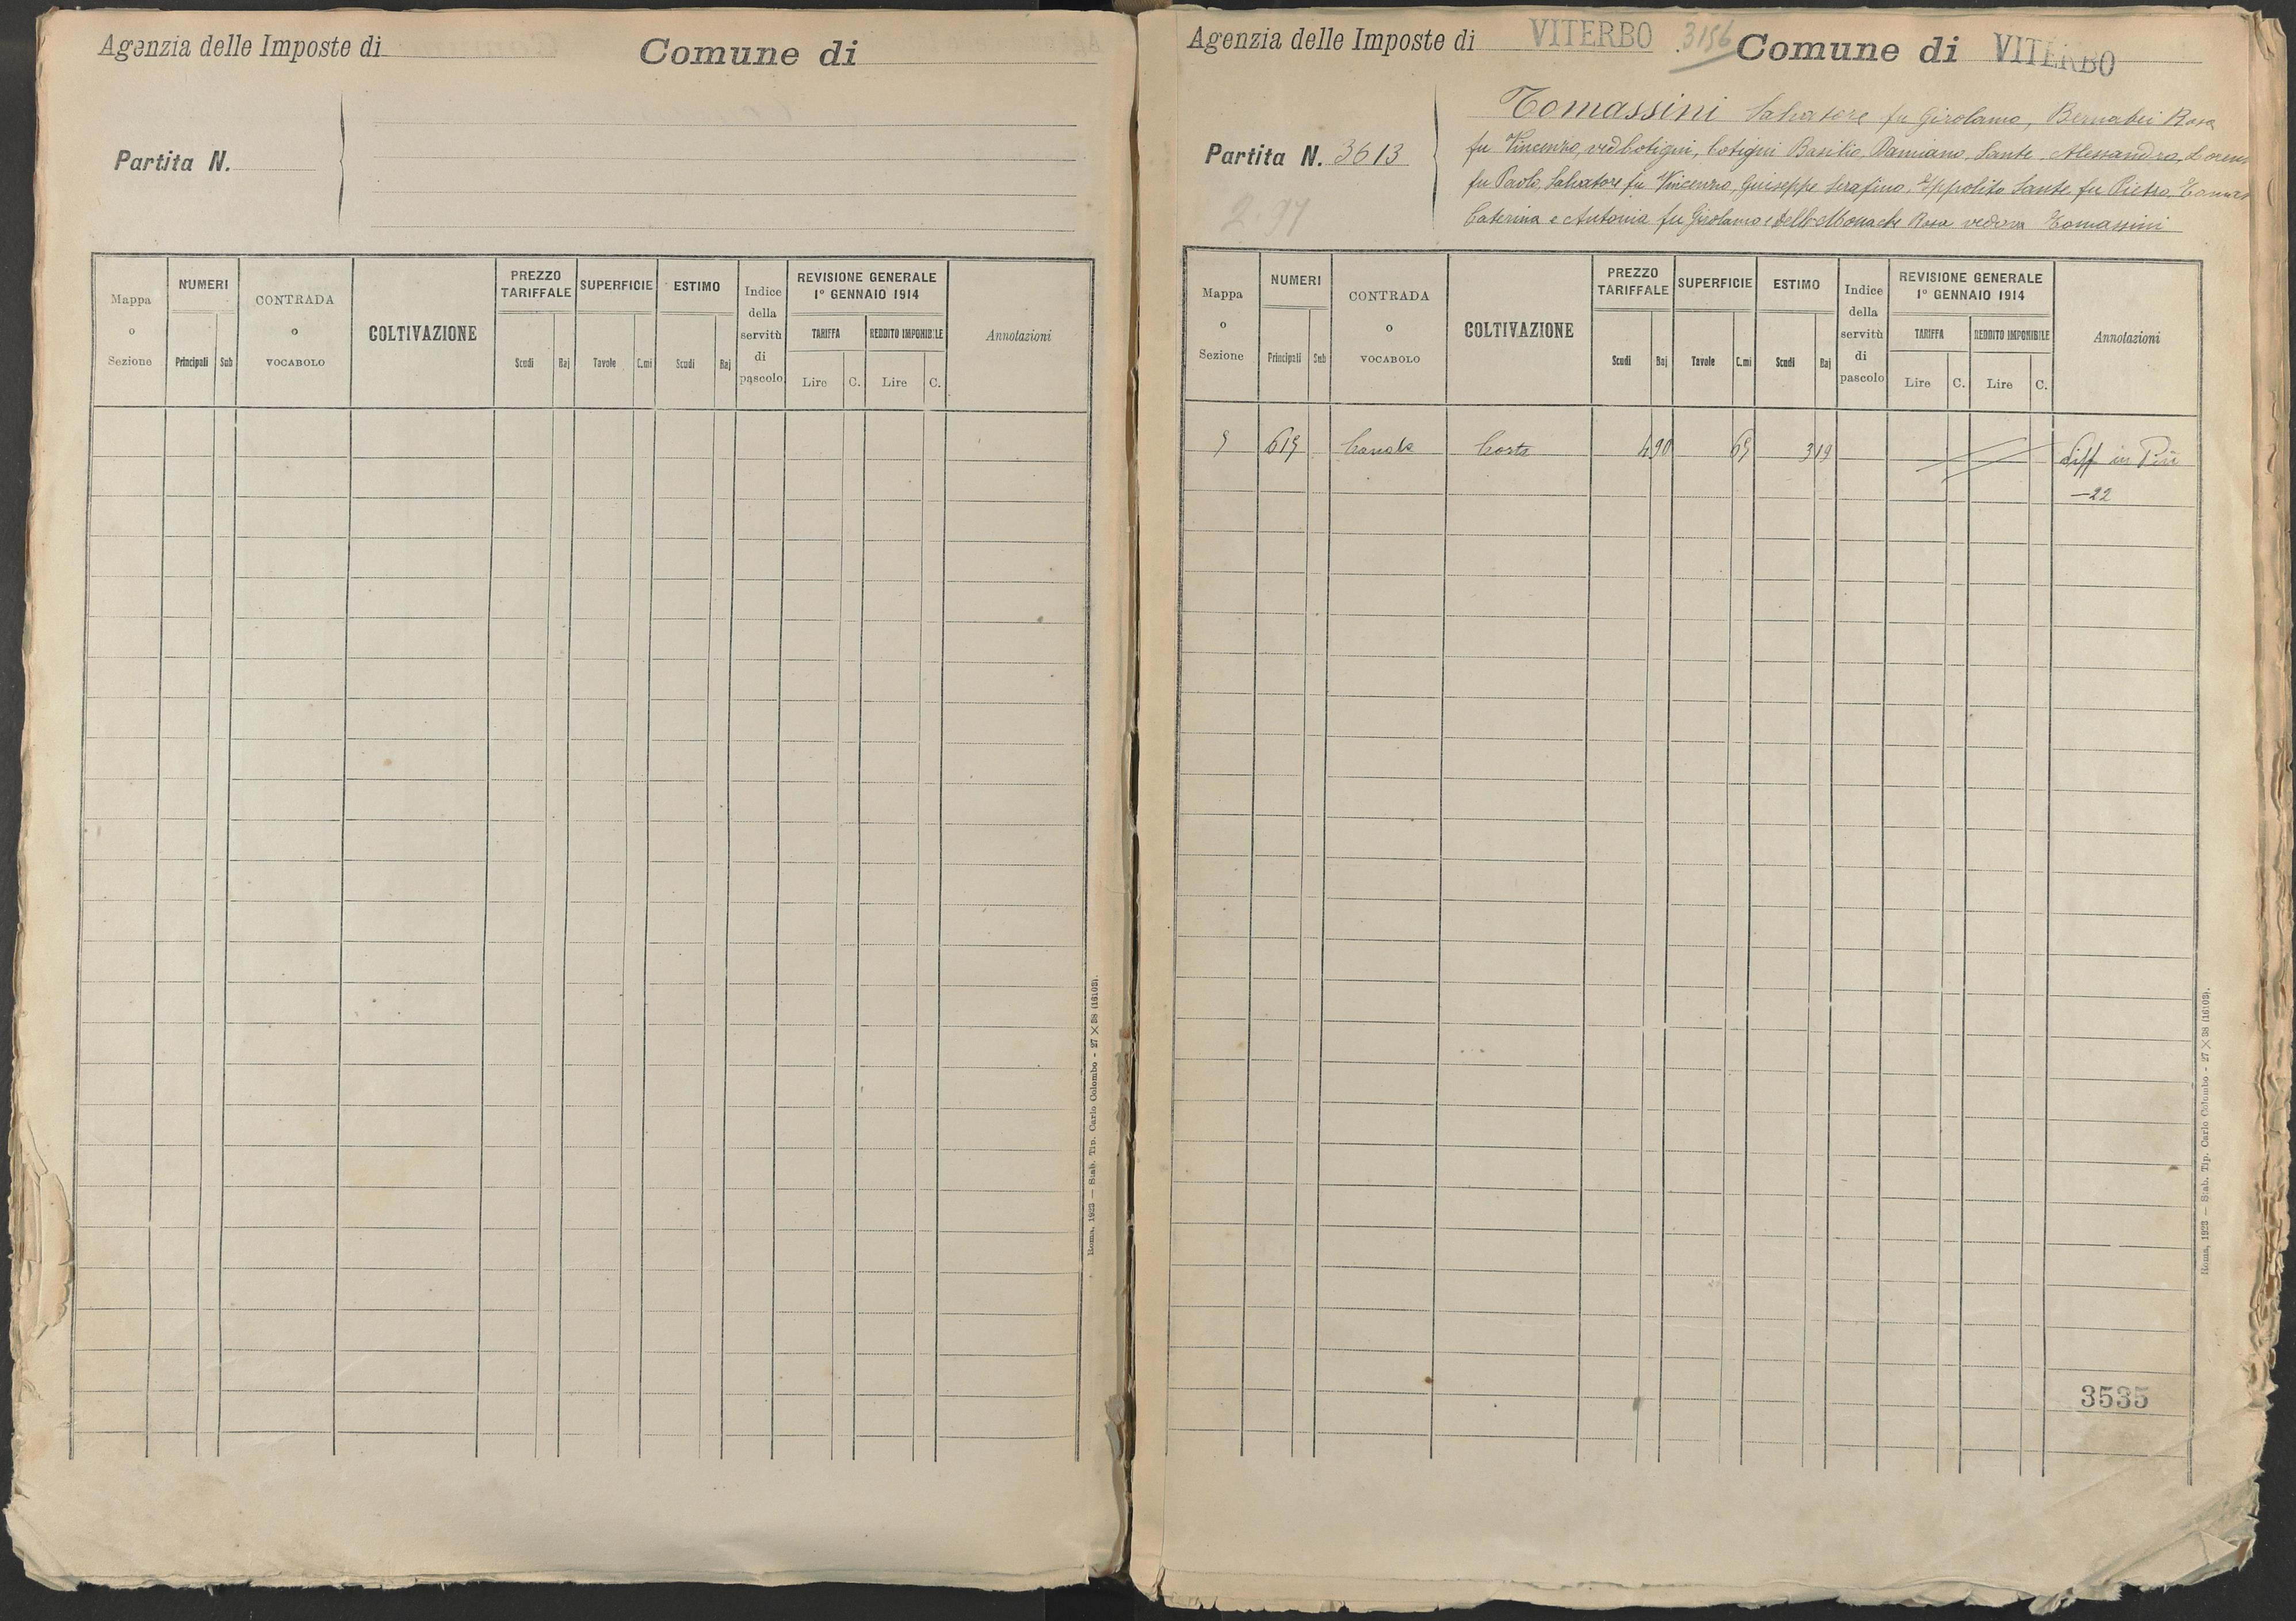 Agenzia delle Imposte di
Comune di
Partita N.
Mappa o Sezione
NUMERI
Principali
Sub
CONTRADA o VOCABOLO
COLTIVAZIONE
PREZZO TARIFFALE
Scudi
Baj
SUPERFICIE
Tavole
C.mi
ESTIMO
Scudi
Baj
Indice della servitù di pascolo
REVISIONE GENERALE
1° GENNAIO 1914
TARIFFA
REDDITO IMPONIBILE
Lire
C.
Lire
C.
Annotazioni
Roma, 1923 — Stab. Tip. Carlo Colombo - 27 × 38 (16103).
Agenzia delle Imposte di VITERBO 3156 Comune di VITERBO
Partita N. 3613
2.97
Tomassini Salvatore fu Girolamo, Bernabei Rosa
fu Vincenzo, ved Cotigni, Cotigni Basilio, Damiano, Sante, Alessandra,
fu Paolo, Salvatore fu Vincenzo, Giuseppe Serafino, Ippolito Sante fu Pietro,
Caterina e Antonia fu Girolamo e Delle Monache Rosa vedova Tomassini
Mappa o Sezione
NUMERI
Principali
Sub
CONTRADA o VOCABOLO
COLTIVAZIONE
PREZZO TARIFFALE
Scudi
Baj
SUPERFICIE
Tavole
C.mi
ESTIMO
Scudi
Baj
Indice della servitù di pascolo
REVISIONE GENERALE
1° GENNAIO 1914
TARIFFA
REDDITO IMPONIBILE
Lire
C.
Lire
C.
Annotazioni
490 65 319 diff in Più
—22
3535
Roma, 1923 — Stab. Tip. Carlo Colombo - 27 × 38 (16103).